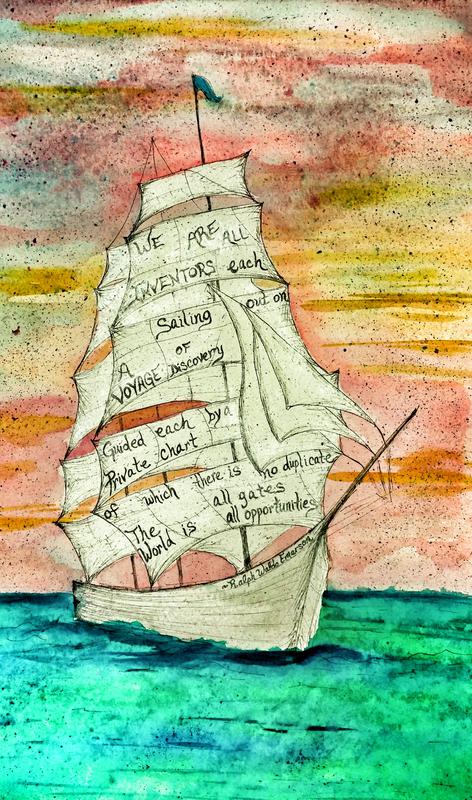 WE ARE ALL
INVENTORS each
out on
Sailing
OF
A
VOYAGE Discovery
Guided each by a
Private chart
of which there is no duplicate
The World is all gates
all opportunities
~Ralph Waldo Emerson